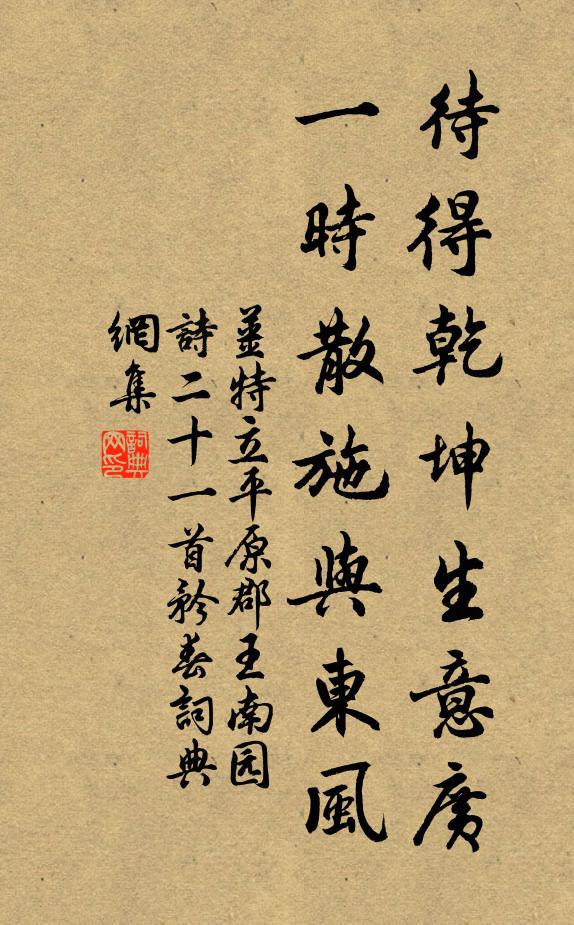 待得乾坤生意廣
一時散施與東風
薑特立平原郡王南园
詩二十一首矜春詞典
網集
詞典
网印